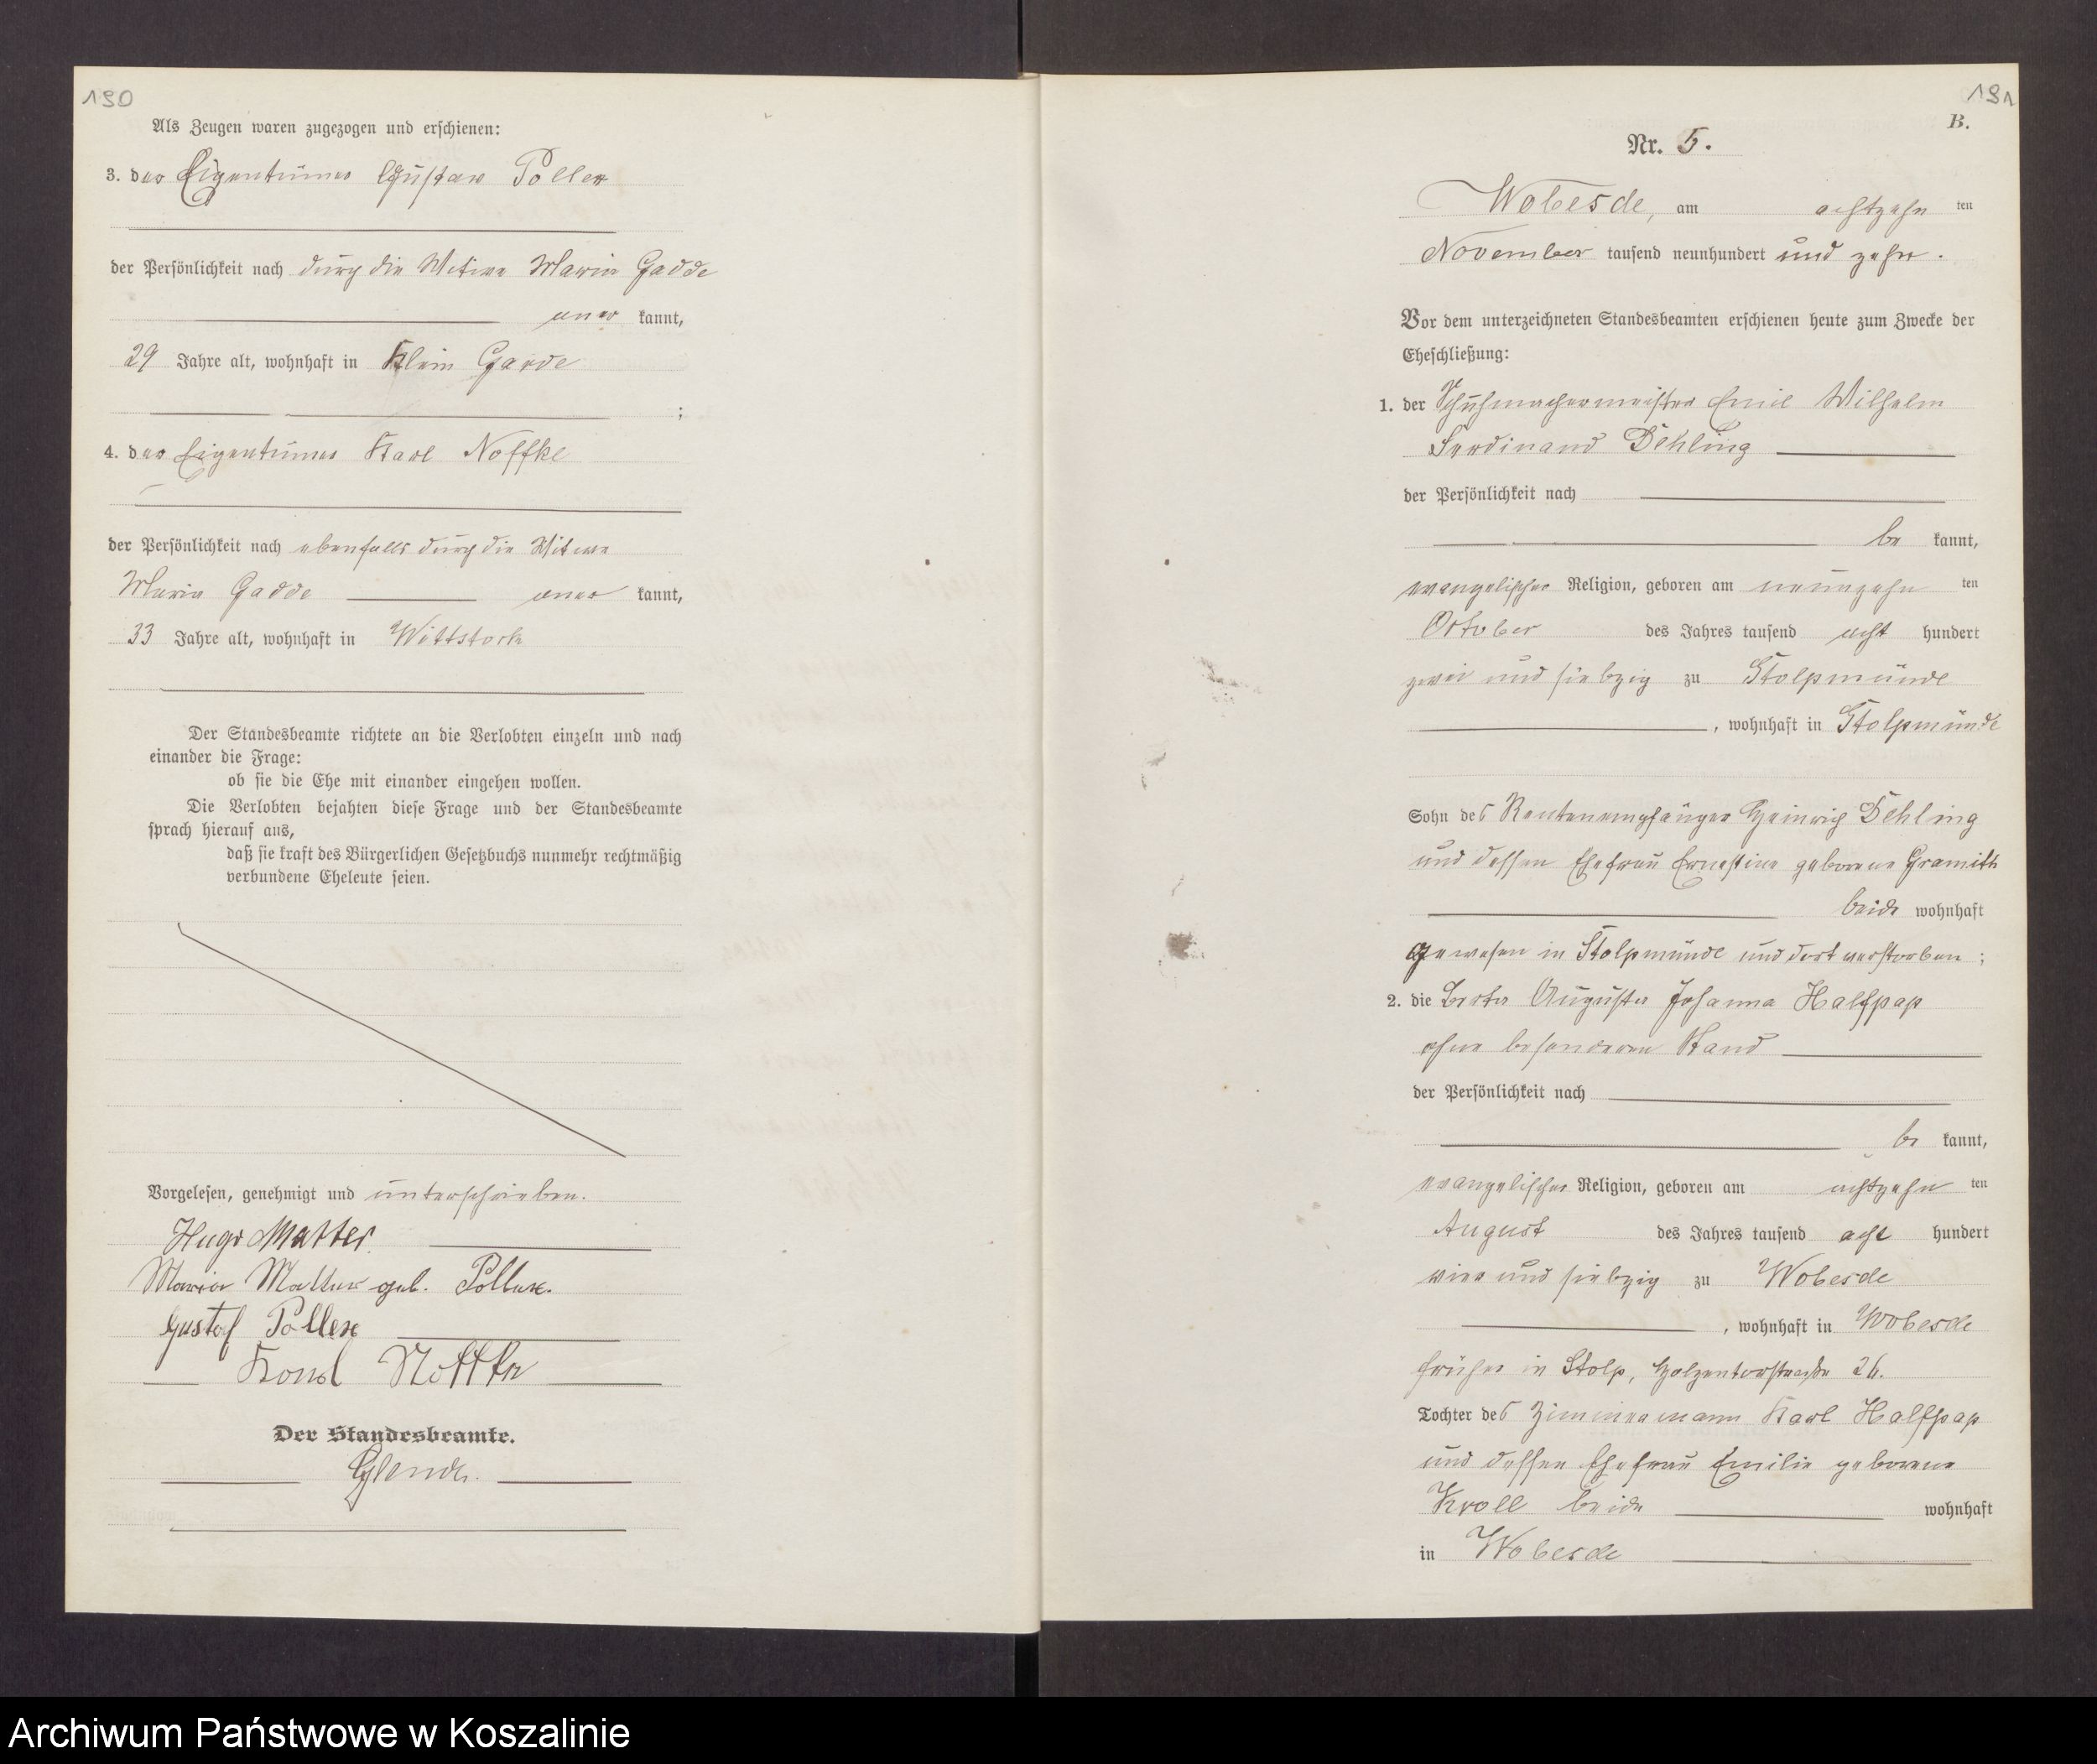 190
Als Zeugen waren zugezogen und erschienen:
3. der Eigentümer Gustav Pollex
der Persönlichkeit nach durch die Witwe Maria Gadde
aner kannt,
29 Jahre alt, wohnhaft in Klein Garde
;
4. der Eigentümer Karl Noffke
der Persönlichkeit nach ebenfalls durch die Witwe
Maria Gadde aner kannt,
33 Jahre alt, wohnhaft in Wittstock
Der Standesbeamte richtete an die Verlobten einzeln und nach
einander die Frage:
ob sie die Ehe mit einander eingehen wollen.
Die Verlobten bejahten diese Frage und der Standesbeamte
sprach hierauf aus,
daß sie kraft des Bürgerlichen Gesetzbuchs nunmehr rechtmäßig
verbundene Eheleute seien.
Vorgelesen, genehmigt und unterschrieben.
Hugo
Maria geb. Pollex.
Gustaf Pollex
Noffke
Der Standesbeamte.
191
B.
Nr. 5.
Wobesde, am achtzehn ten
November tausend neunhundert und zehn.
Vor dem unterzeichneten Standesbeamten erschienen heute zum Zwecke der
Eheschließung:
1. der Schuhmachermeister Emil Wilhelm
Ferdinand Dehling
der Persönlichkeit nach
be kannt,
evangelischer Religion, geboren am neunzehn ten
October des Jahres tausend acht hundert
zwei und siebzig zu Stolpmünde
, wohnhaft in Stolpmünde
Sohn des Rentenempfänger Heinrich Dehling
und dessen Ehefrau Ernestine geborene
beide wohnhaft
gewesen in Stolpmünde und dort verstorben;
2. die Berta Auguste Johanna Halfpap
ohne besonderen Stand
der Persönlichkeit nach
be kannt,
evangelischer Religion, geboren am achtzehn ten
August des Jahres tausend acht hundert
vier und siebzig zu Wobesde
, wohnhaft in Wobesde
früher in Stolp, Holzentorstraße 26.
Tochter des Zimmermann Karl Halfpap
und dessen Ehefrau Emilie geborene
Kroll beide wohnhaft
in Wobesde
Archiwum Państwowe w Koszalinie